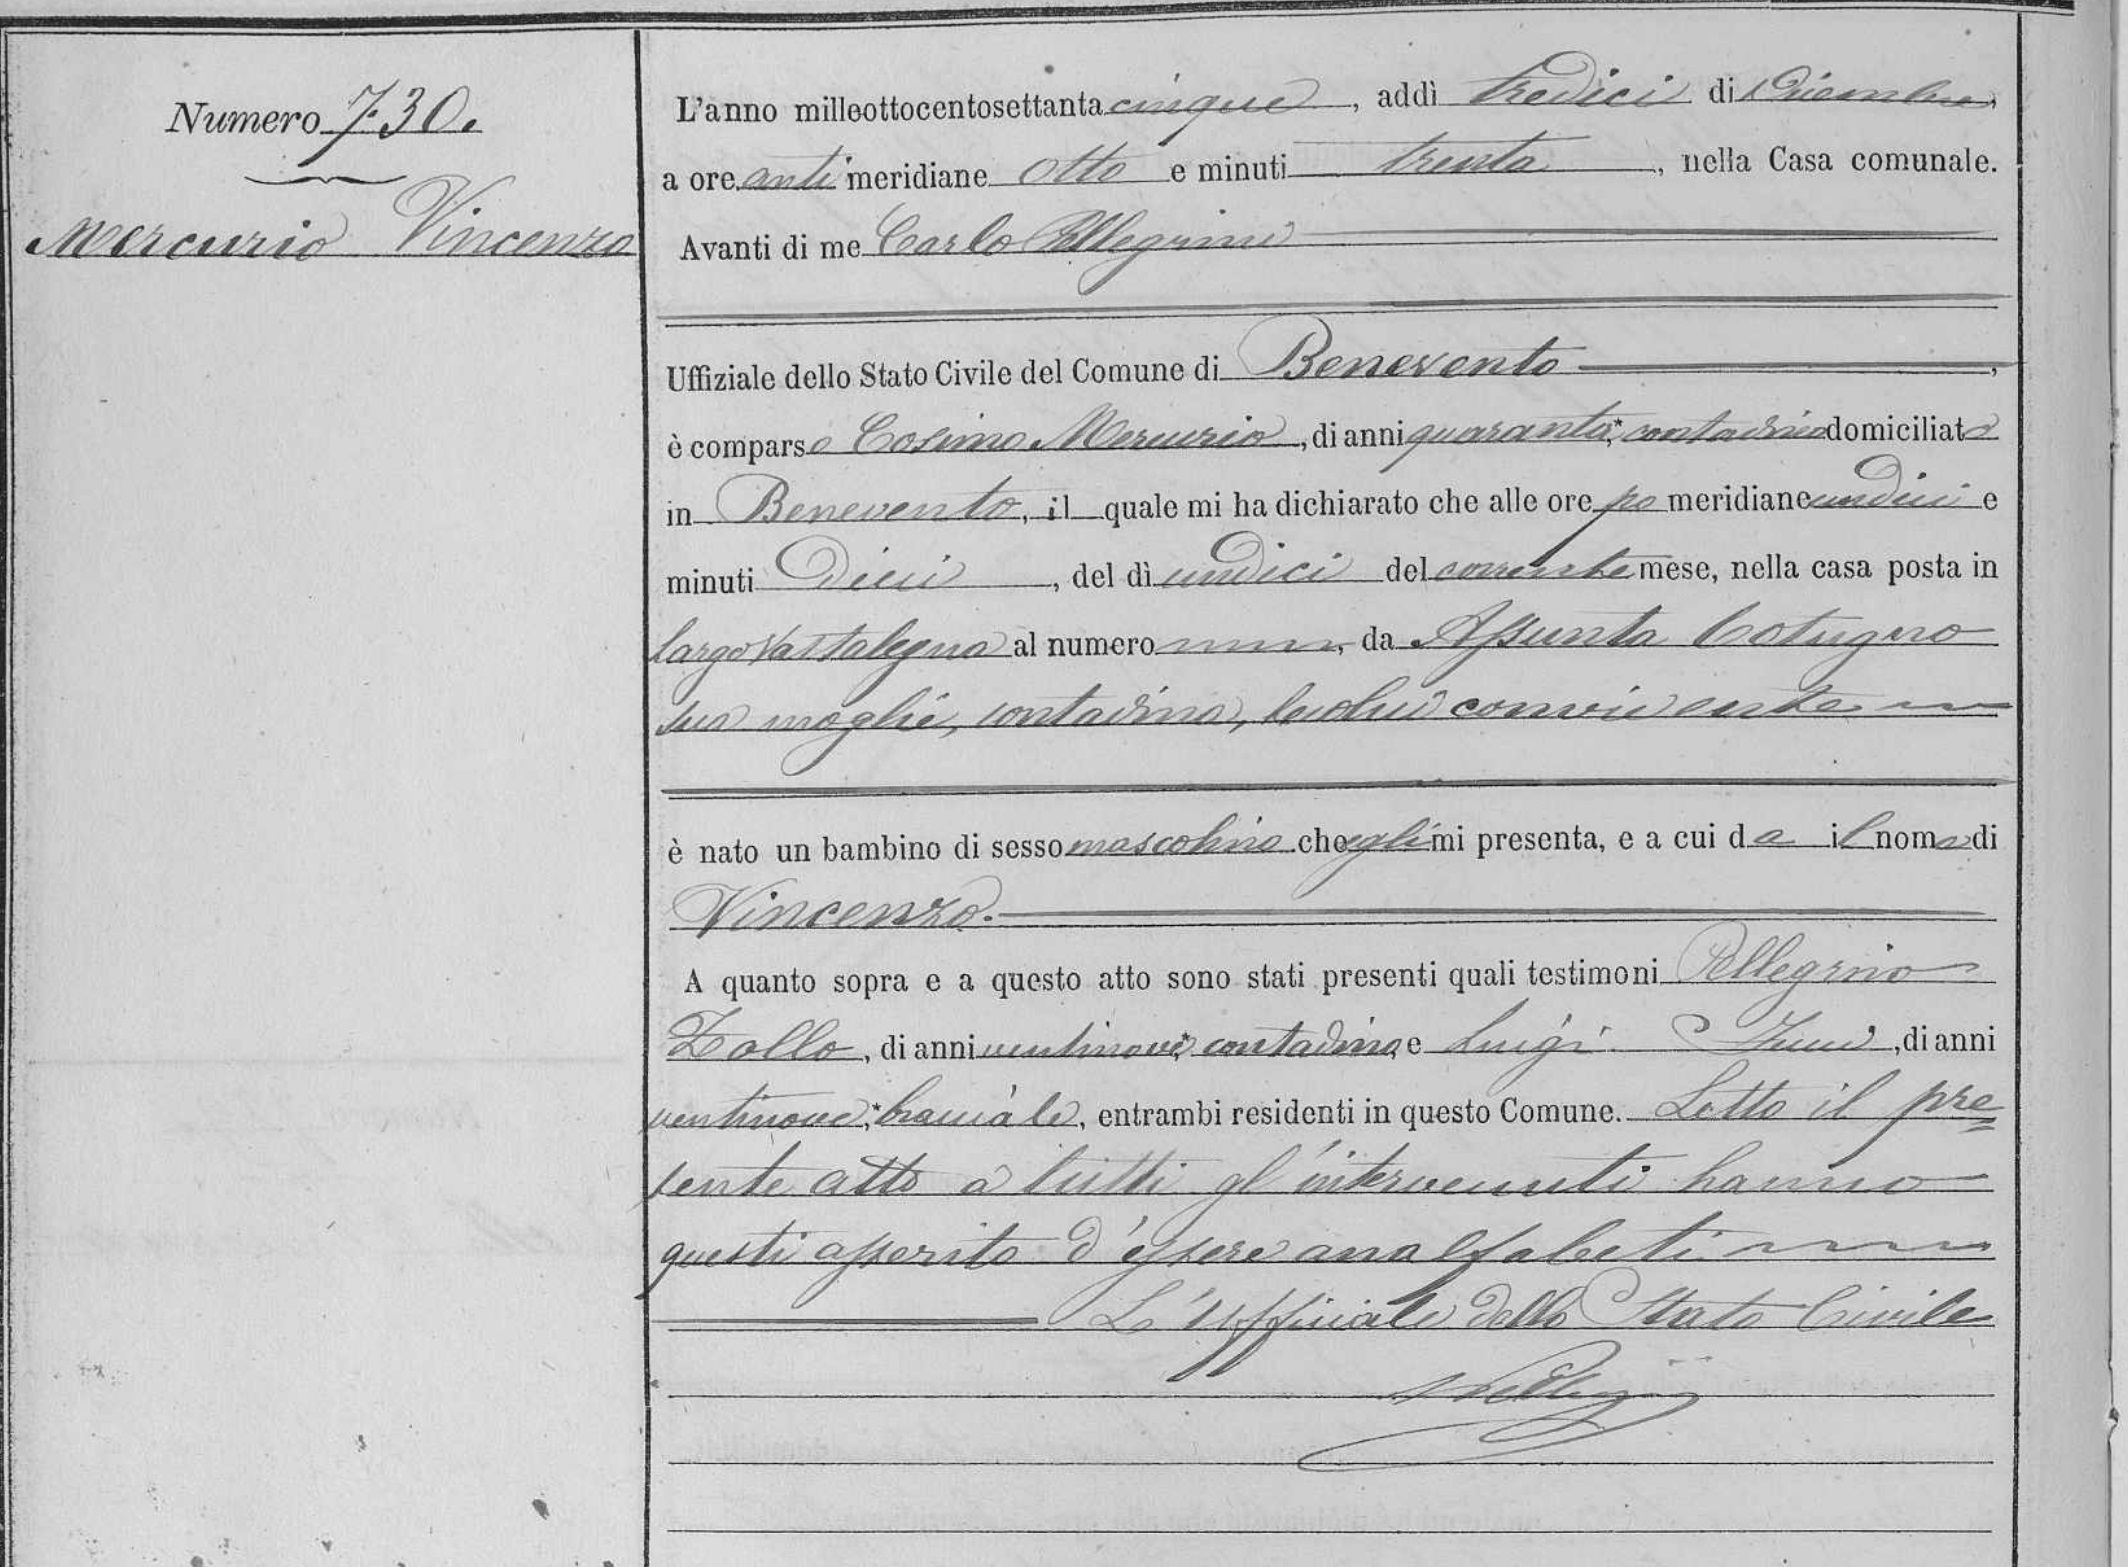 Numero 730.
Mercurio Vincenzo
L'anno milleottocentosettanta cinque, addì tredici di Dicembre,
a ore anti meridiane otto e minuti trenta, nella Casa comunale.
Avanti di me Carlo Pellegrini
Uffiziale dello Stato Civile del Comune di Benevento,
è comparso Cosimo Mercurio, di anni quaranta,* contadino domiciliato
in Benevento, il quale mi ha dichiarato che alle ore po meridiane undici e
minuti dieci, del dì undici del corrente mese, nella casa posta in
largo al numero, da Assunta Cotugno
sua moglie, contadina, convivente
è nato un bambino di sesso mascolino che egli mi presenta, e a cui da il nome di
Vincenzo.
A quanto sopra e a questo atto sono stati presenti quali testimoni Pellegrino
Zollo, di anni ventinove,* contadino, e Luigi, di anni
ventinove,* bracciale, entrambi residenti in questo Comune. Letto il pre=
sente atto a tutti gl'intervenuti hanno
questi asserito d'essere analfabeti
L'Uffiziale dello Stato Civile